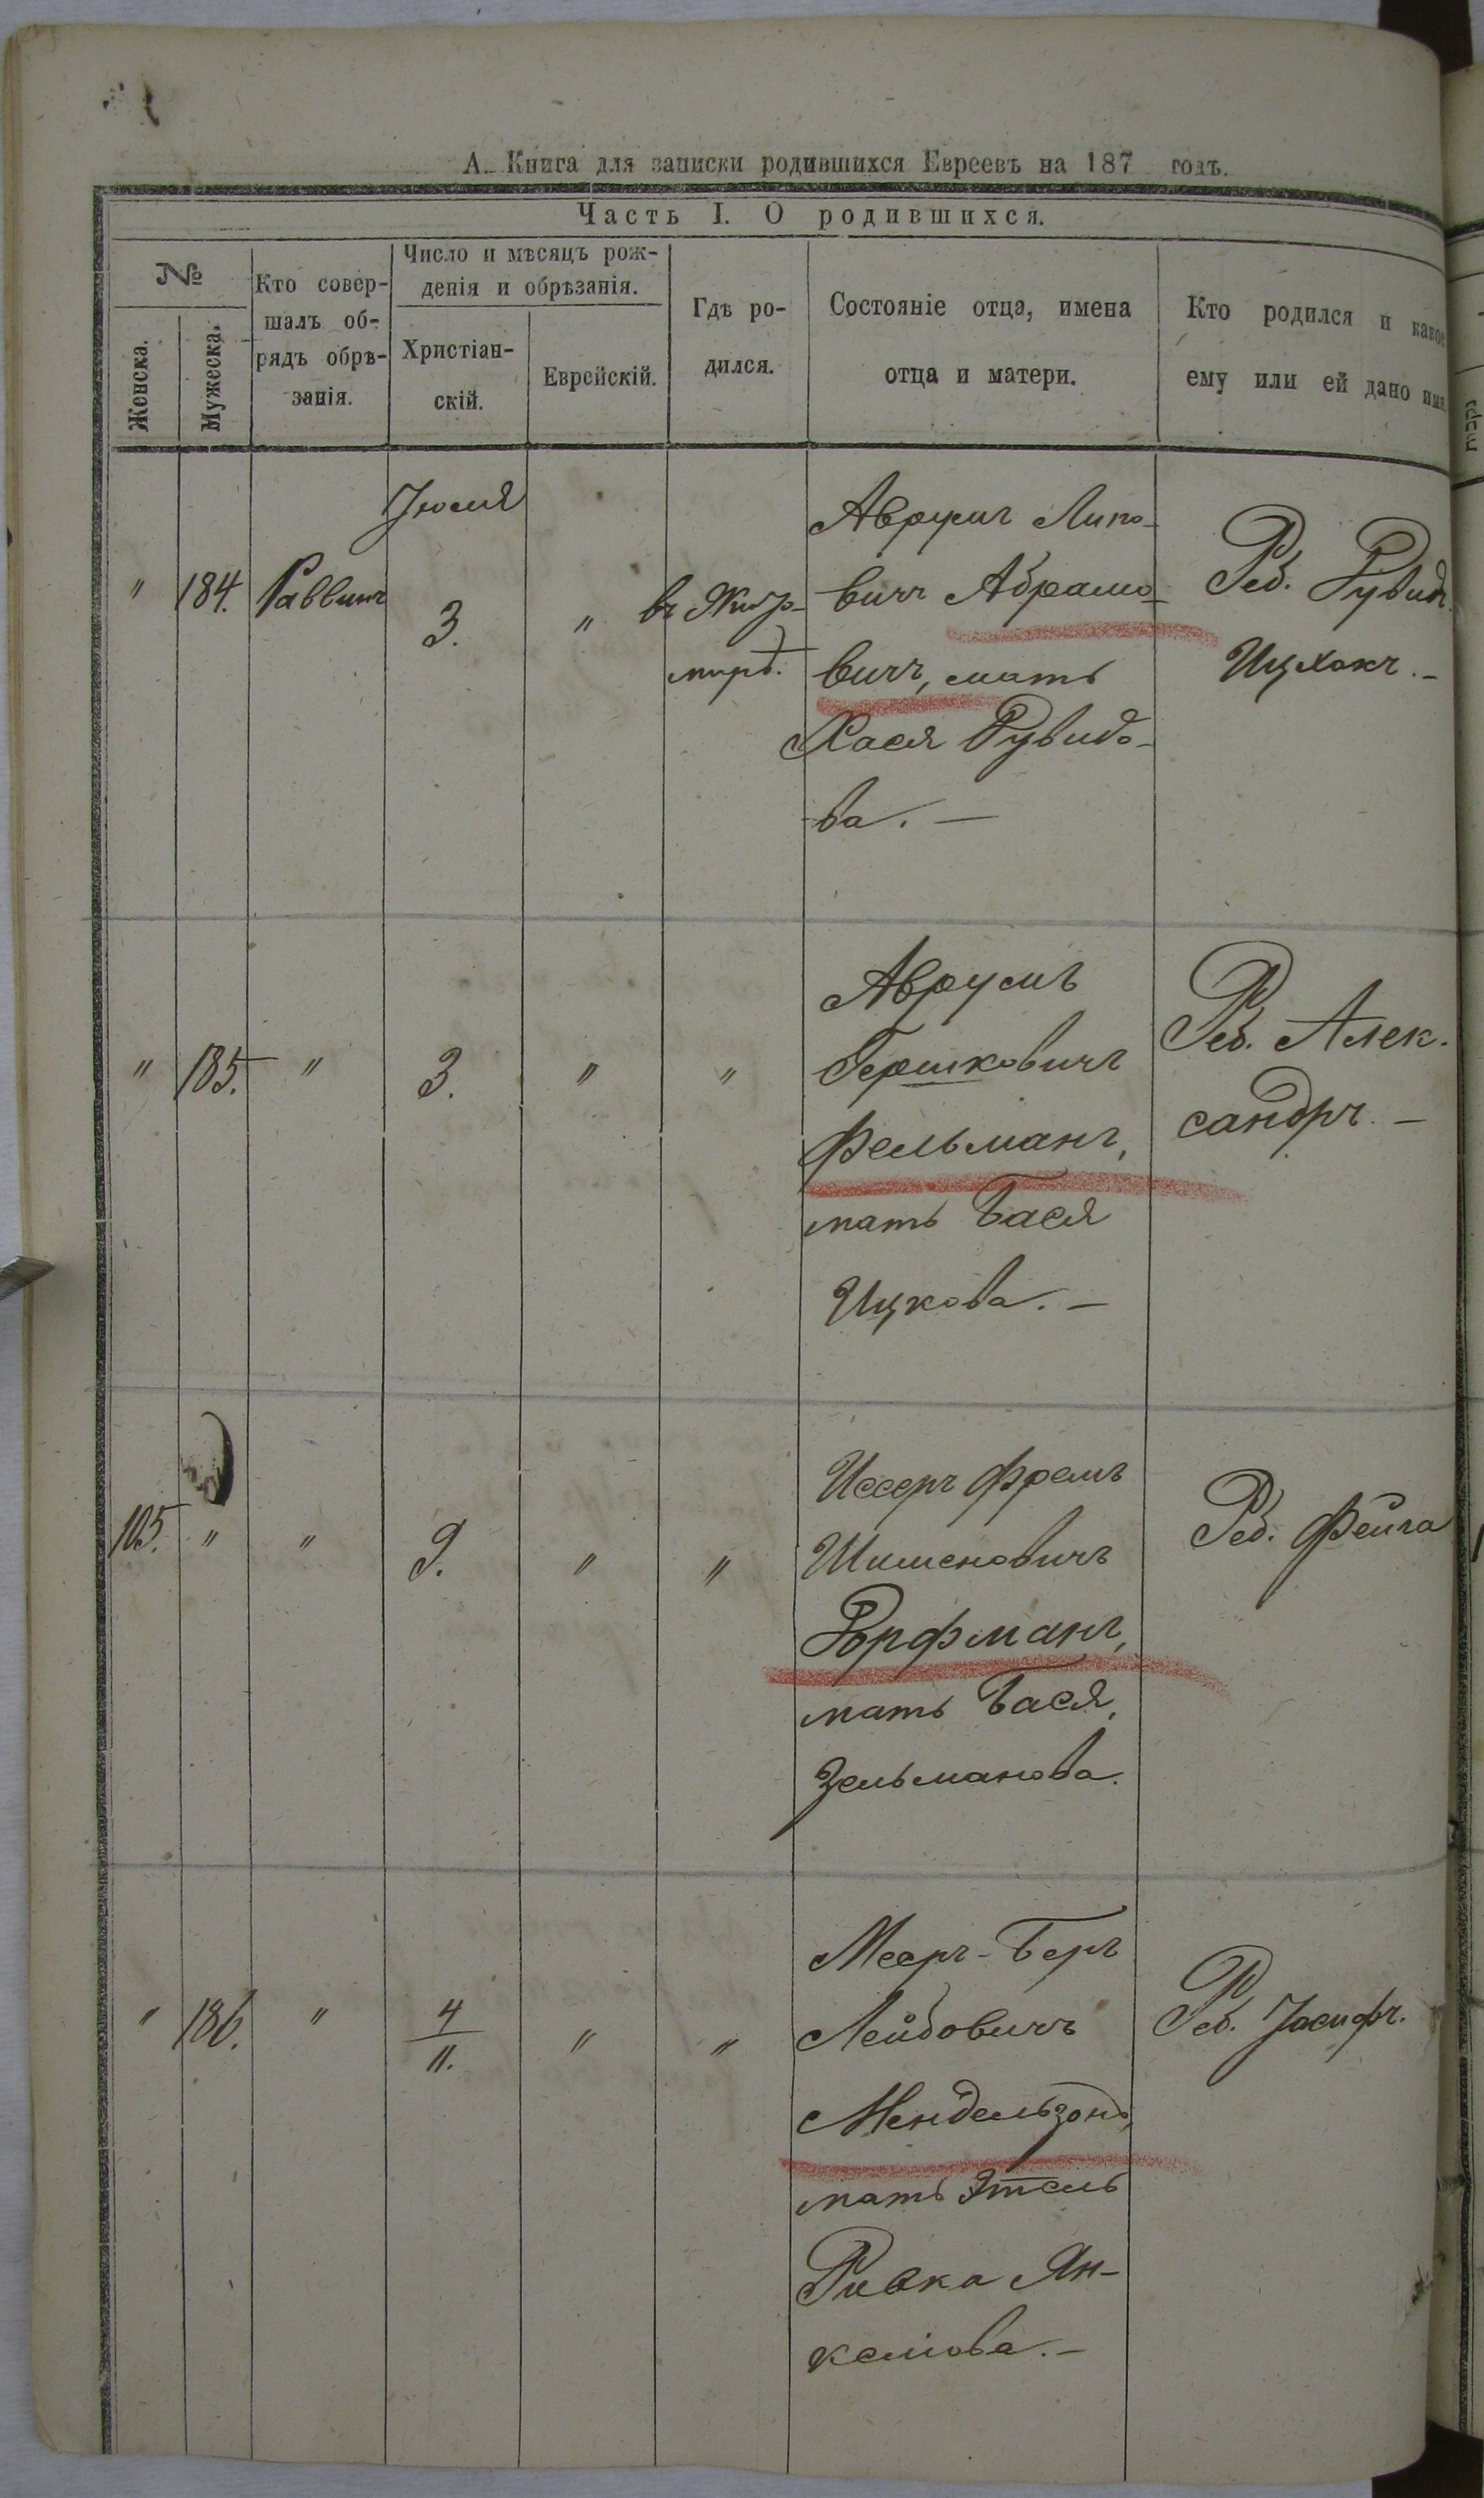 А. Книга для записки родившихся Евреевъ на 187 годъ.
Часть I. О родившихся.
№
Женска.
Мужеска.
Кто совер-
шалъ об-
рядъ обрѣ-
занія.
Число и мѣсяцъ рож-
денія и обрѣзанія.
Христіан-
скій.
Еврейскій.
Гдѣ ро-
дился.
Состояніе отца, имена
отца и матери.
Кто родился и какое
ему или ей дано имя.
Іюля
" 184. Раввинъ 3. " въ Жито-
мирѣ.
Аврумъ Липо-
вичъ Абрамо-
вичъ, мать
Хася Рувидо-
ва. —
Реб. Рувидъ
Ицхокъ. –
" 185. " 3. " "
Аврумъ
Гершковичъ
Фельманъ,
мать Бася
Ицкова. –
Реб. Алек-
сандръ. –
105. " " 9. " "
Иссеръ Фремъ
Шименовичъ
Дорфманъ,
мать Бася
Зельманова.
Реб. Фейга
" 186. " 4/11. " "
Мееръ-Беръ
Лейбовичъ
Мендельзонъ,
мать Этель
Ривка Ян-
келіова. –
Реб. Іосифъ.